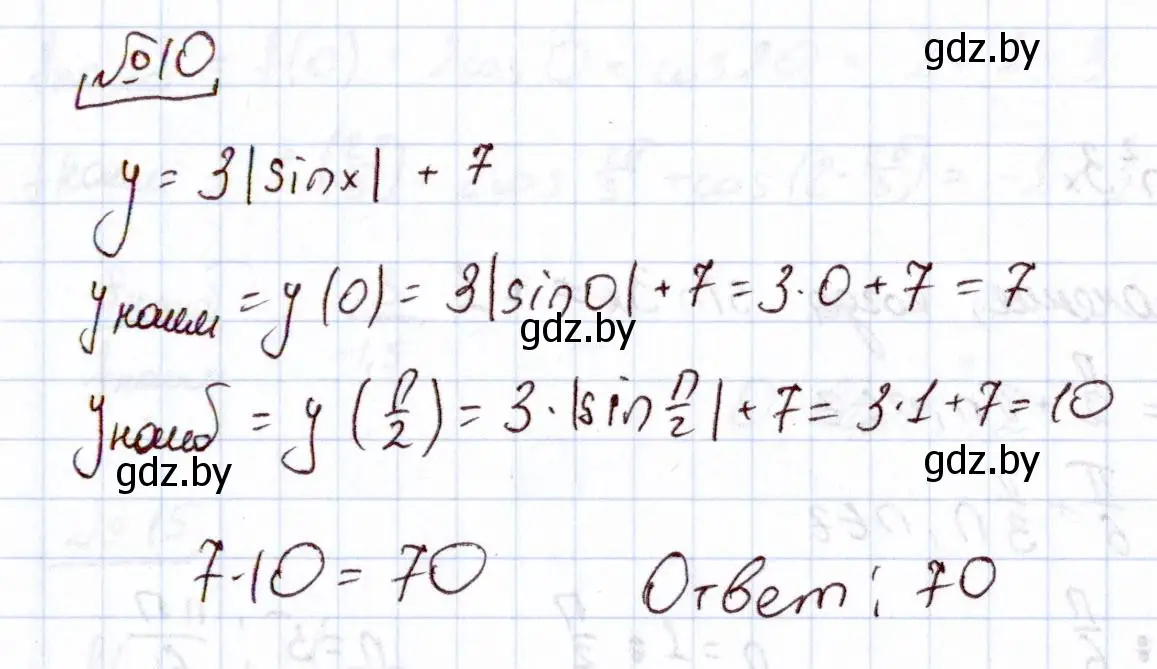 №10 gdz.by
y = 3|sinx| + 7
yнаим = y(0) = 3|sin0| + 7 = 3·0 + 7 = 7
gdz.by
yнаиб = y(π/2) = 3·|sin π/2| + 7 = 3·1 + 7 = 10
gdz.by gdz.by
7·10 = 70 Ответ: 70